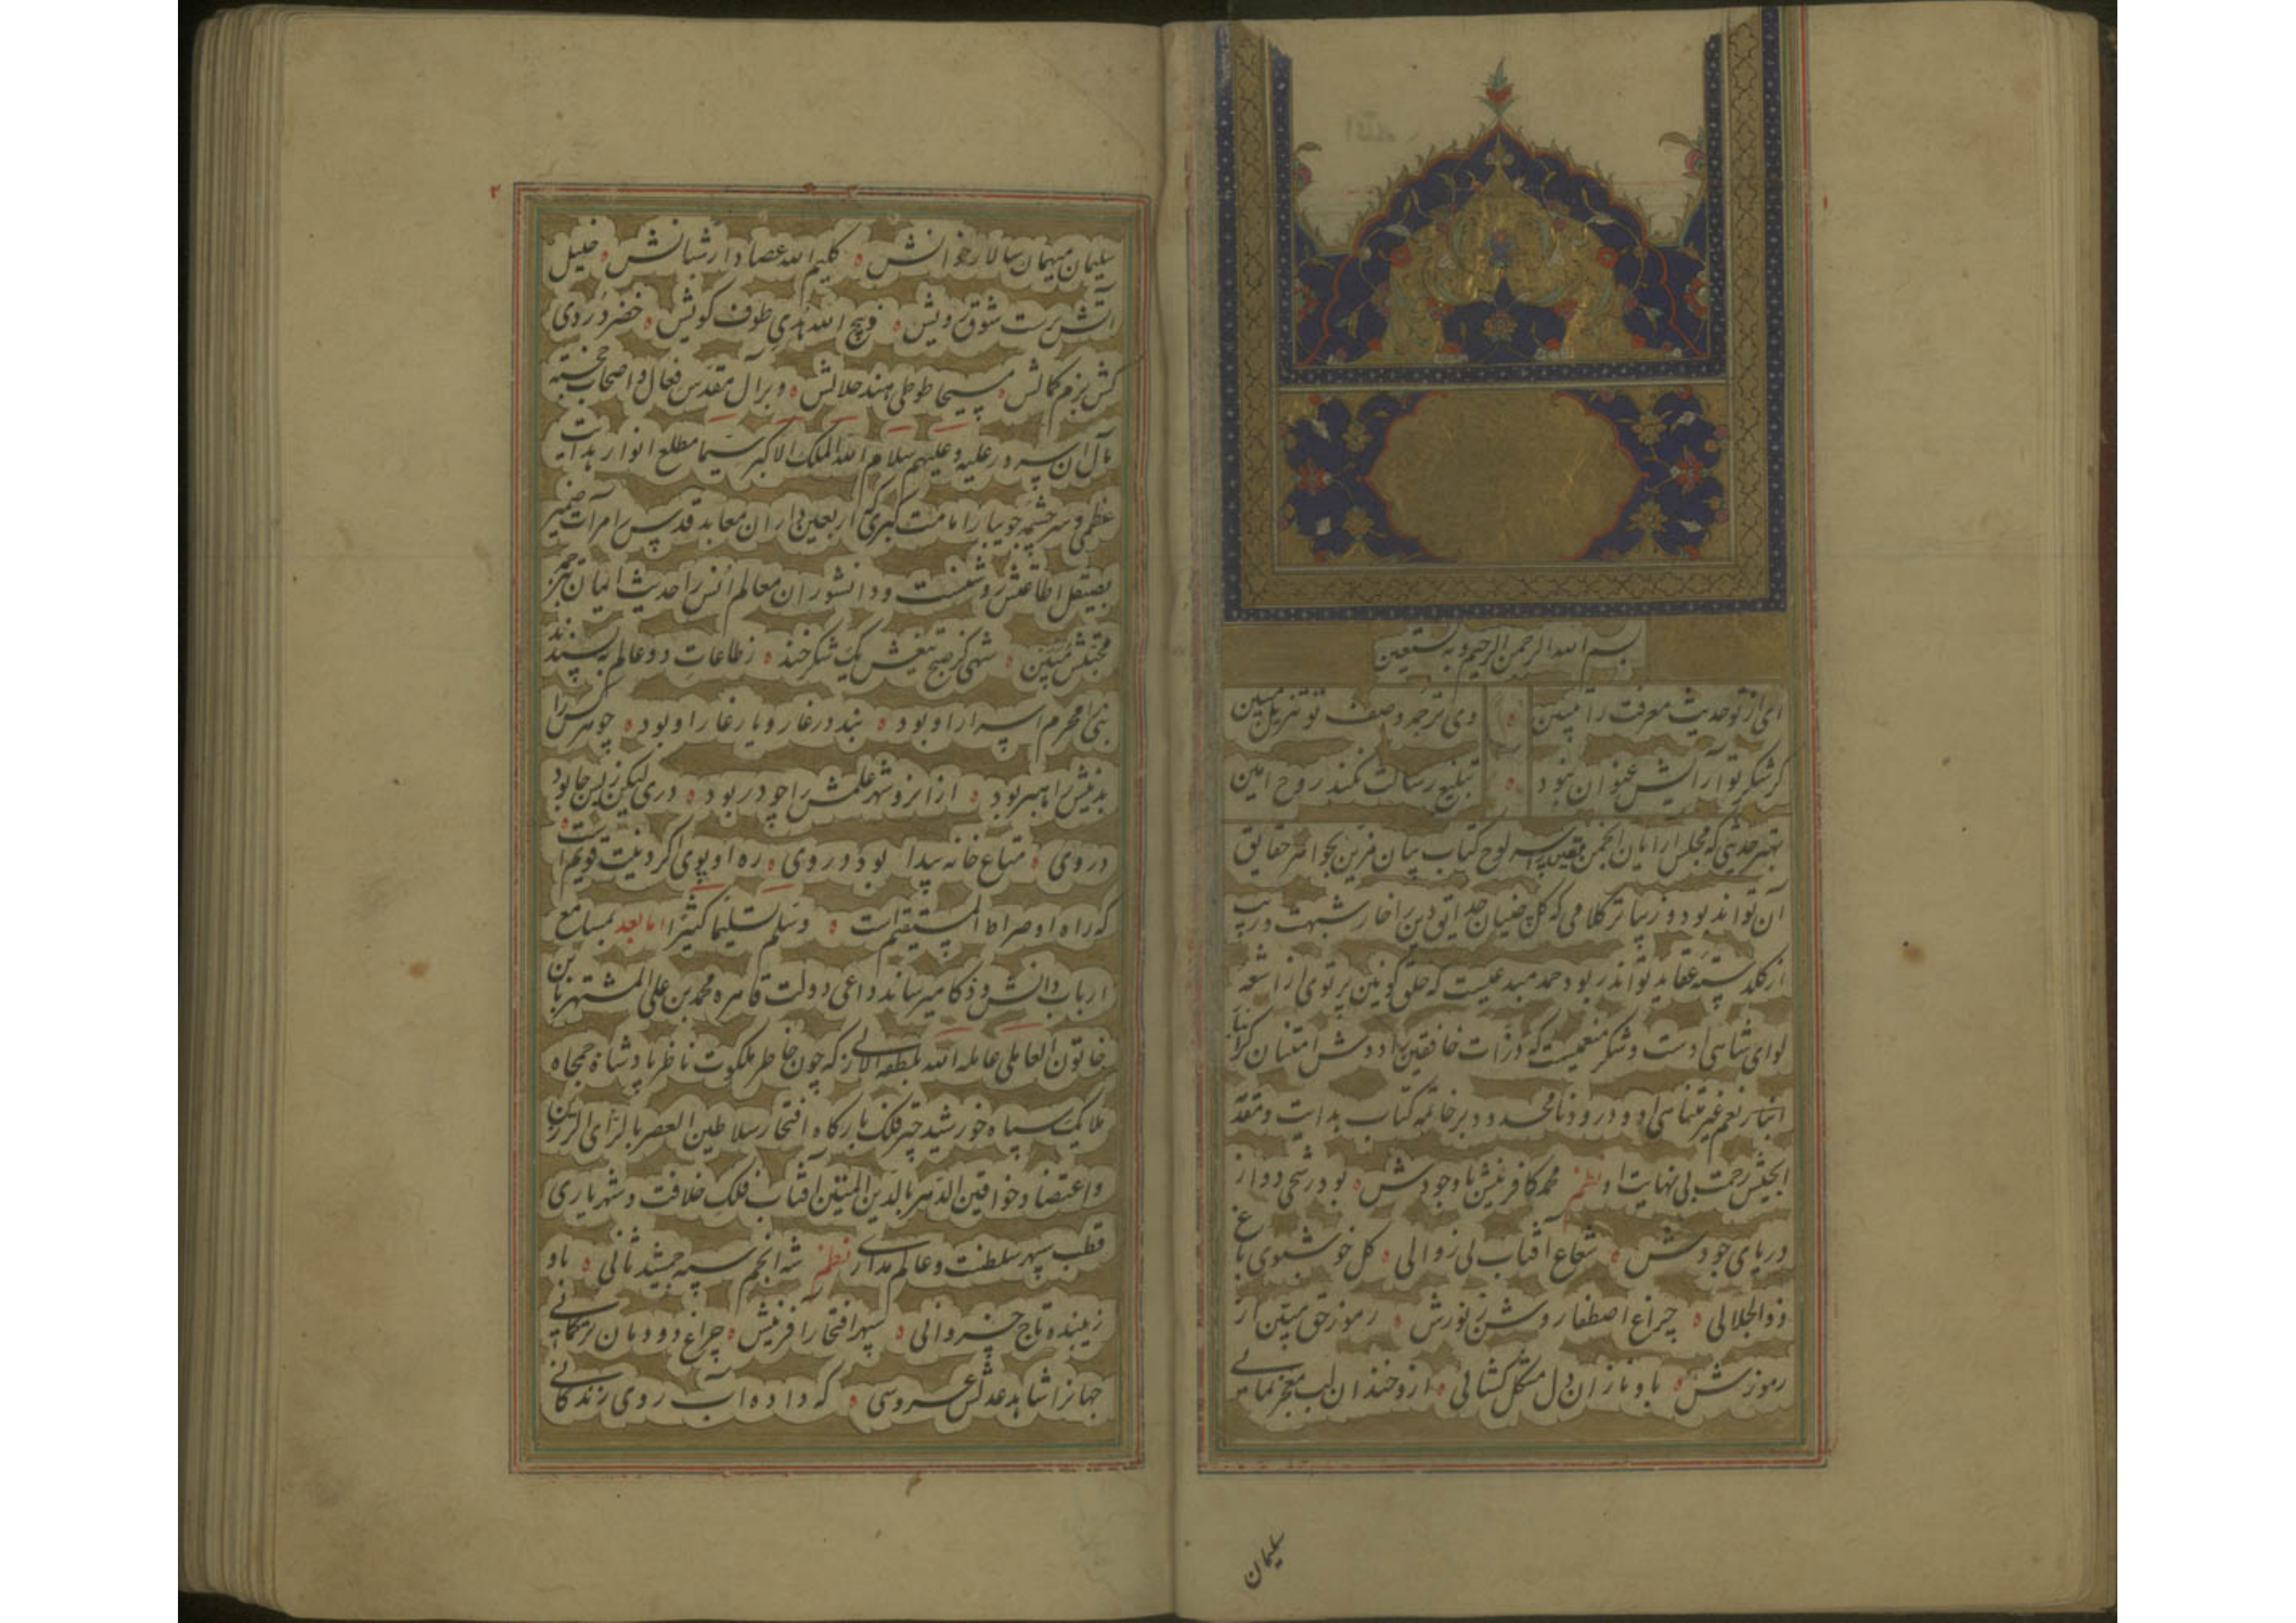 بسم الله الرحمن الرحیم وبه نستعین
ای از تو حدیث معرفت را تبیین وی ترجمه وصف تو تنزیل مبین
گر شکر تو آرایش عنوان نبود تبلیغ رسالت نکند روح امین
بهتر حدیثی که مجلس آرایان انجمن یقین را سر لوح کتاب بیان مزین بجواهر حقایق
آن تواند بود و زیباتر کلامی که گل چنیان حدایق دین را خار شبهت و ریب
از گلدسته عقاید تواند ربود حمد مبدعیست که خلق کونین پرتوی از اشعه
لوای شاهی اوست و شکر منعمیست که ذرات خافقین را دوش امتنان گرانبار
انبار نعم غیر متناهی او و درود نامحدود بر خاتمه کتاب هدایت و مقدمة
الجیش رحمت بی نهایت او نظم محمد کافرینش با وجودش بود رشحی دو از
دریای جودش شعاع آفتاب لی زوالی گل خوشبوی باغ
ذوالجلالی چراغ اصطفا روشن ز نورش رموز حق مبین از
رموزش باو نازان دل مشکل گشائی ازو خندان لب معجز نمایی
سلیمان
۲
سلیمان میهمان سالار خوانش کلیم الله عصا دار شبانش خلیل
آتش پرست شوق رویش ذبیح الله هدی طوف کویش خضر دردی
کش بزم کمالش مسیحا طوطی هند جلالش و بر آل مقدس فعال و اصحاب خجسته
مآل آن سرور علیه و علیهم سلام الله الملک الاکبر سیما مطلع انوار هدایت
عظمی و سر چشمه جویبار امامت کبری که اربعین داران معابد قدس را مرآت ضمیر
بصیقل اطاعتش روشنست و دانشوران معالم انس را حدیث ایمان بمهر
محبتش مبین شهی کز صبح تیغش یک شکر خند ز طاعات دو عالم به پسندند
نبی را محرم اسرار او بود نبد در غار و یار غار او بود چو هر کس را
بذیلش راهبر بود از انرو شهر علمش را چو در بود دری لیکن پس جا بود
در وی متاع خانه پیدا بود در وی ره او پوی اگر دینت قویم است
که راه او صراط المستقیم است وسلم تسلیما کثیرا اما بعد بمسامع
ارباب دانش و ذکا میرساند داعی دولت قاهره محمد بن علی المشتهر بابن
خاتون العاملی عامله الله بلطفه الازلی که چون خاطر ملکوت ناظر پادشاه جمجاه
ملایک سپاه خورشید چتر فلک بارگاه افتخار سلاطین العصر بالرای الرزین
و اعتضاد خواقین الدهر بالدین المتین آفتاب فلک خلافت و شهریاری
قطب سپهر سلطنت و عالم مداری نظم شه انجم سپه جمشید ثانی باو
زیبنده تاج خسروانی سپهر افتخار آفرینش چراغ دودمان ترکمانی
جهانرا شاهد عدلش عروسی که داده آب روی زندگانی